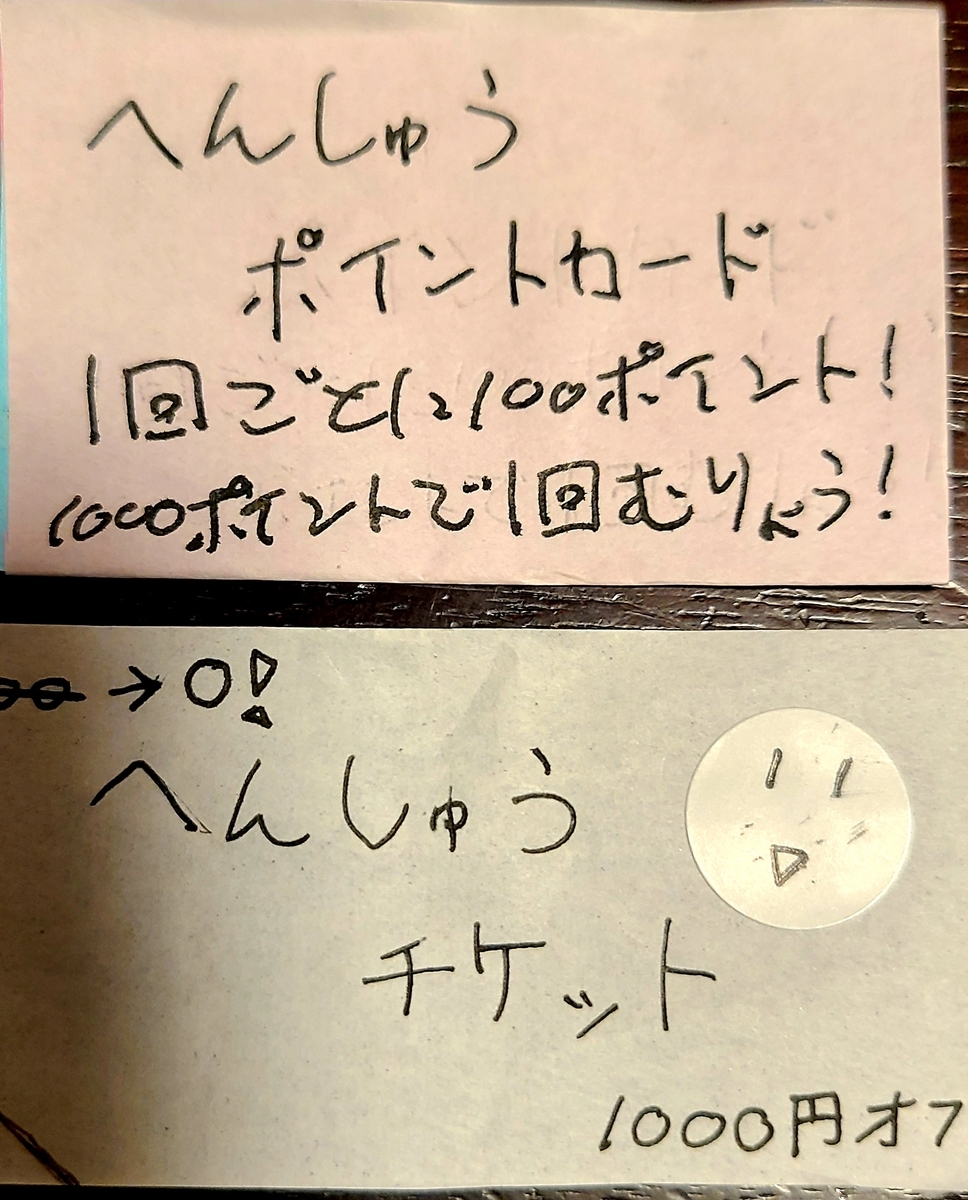 へんしゅう
ポイントカード
1回ごとに100ポイント!
1000ポイントで1回むりょう!
→0!
へんしゅう
チケット
1000円オフ